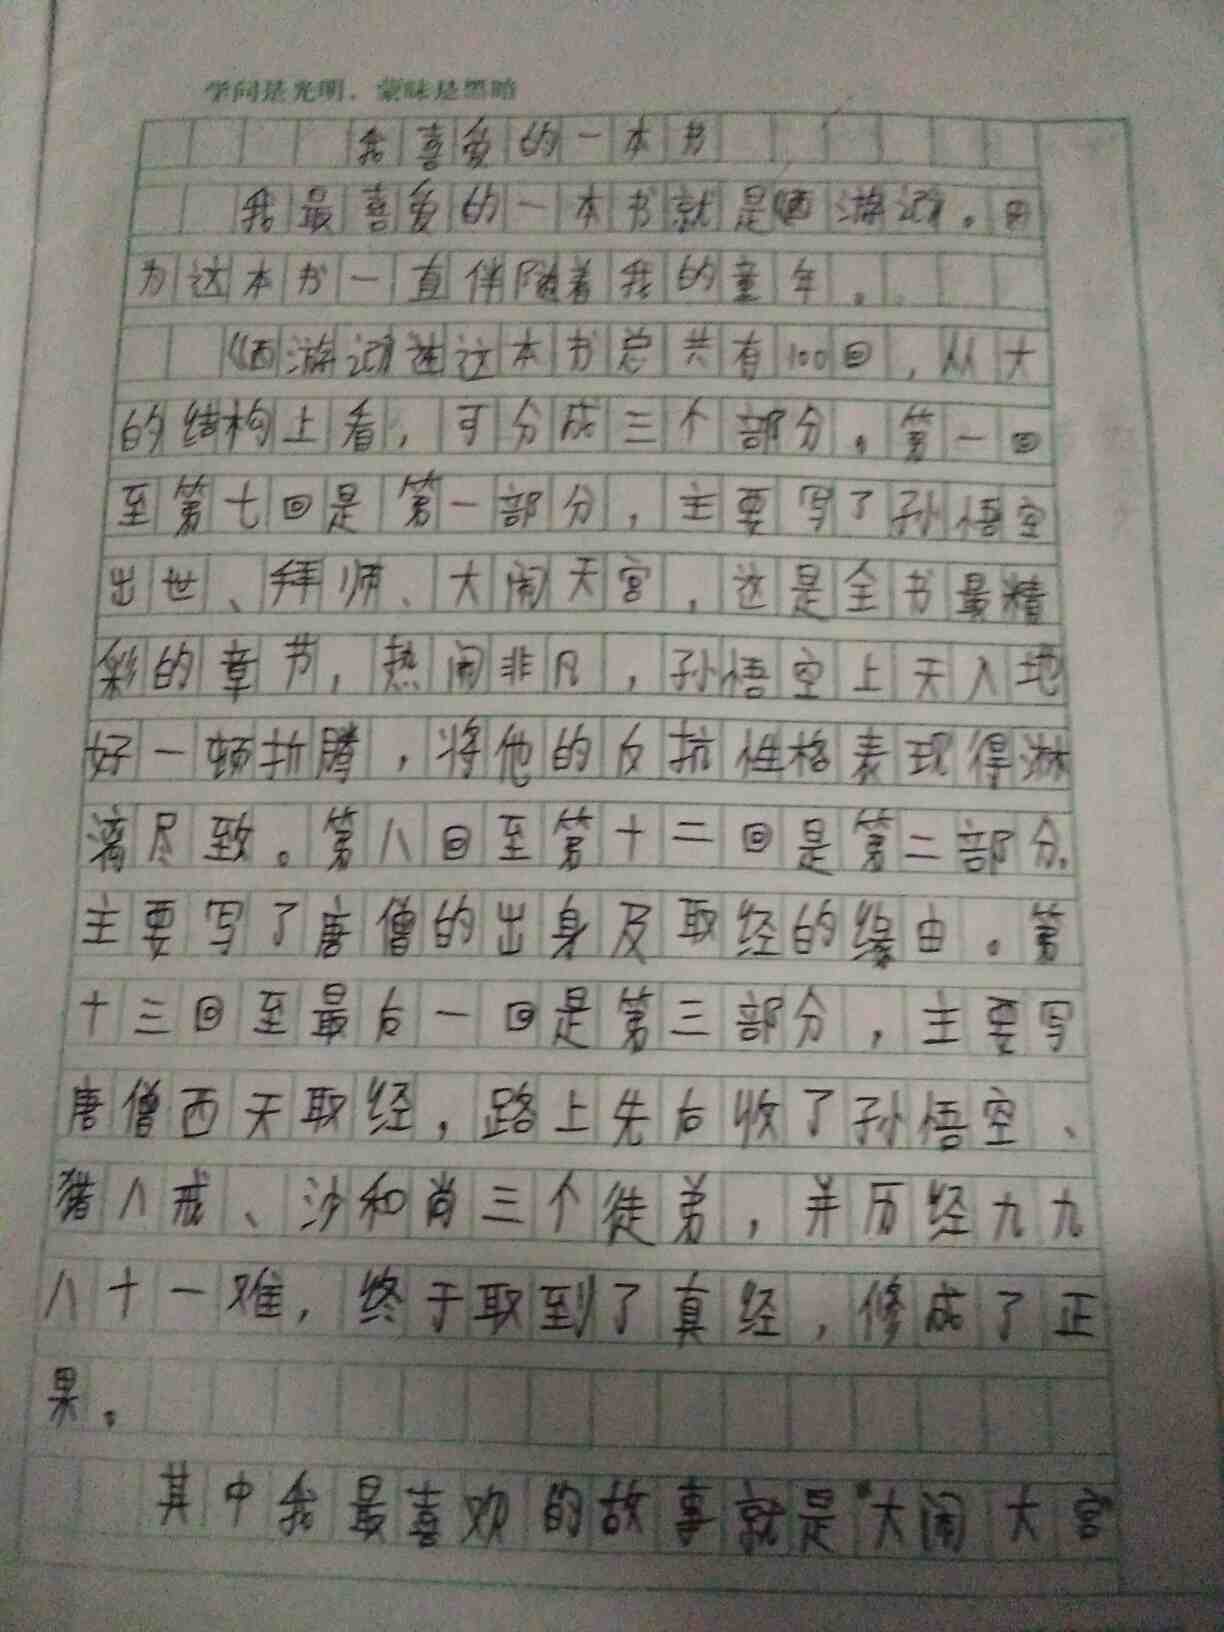 学问是光明，蒙昧是黑暗
我喜爱的一本书
我最喜爱的一本书就是《西游记》。因
为这本书一直伴随着我的童年。
《西游记》这本书总共有100回，从大
的结构上看，可分成三个部分。第一回
至第七回是第一部分，主要写了孙悟空
出世、拜师、大闹天宫，这是全书最精
彩的章节，热闹非凡，孙悟空上天入地
好一顿折腾，将他的反抗性格表现得淋
漓尽致。第八回至第十二回是第二部分，
主要写了唐僧的出身及取经的缘由。第
十三回至最后一回是第三部分，主要写
唐僧西天取经，路上先后收了孙悟空、
猪八戒、沙和尚三个徒弟，并历经九九
八十一难，终于取到了真经，修成了正
果。
其中我最喜欢的故事就是“大闹大宫